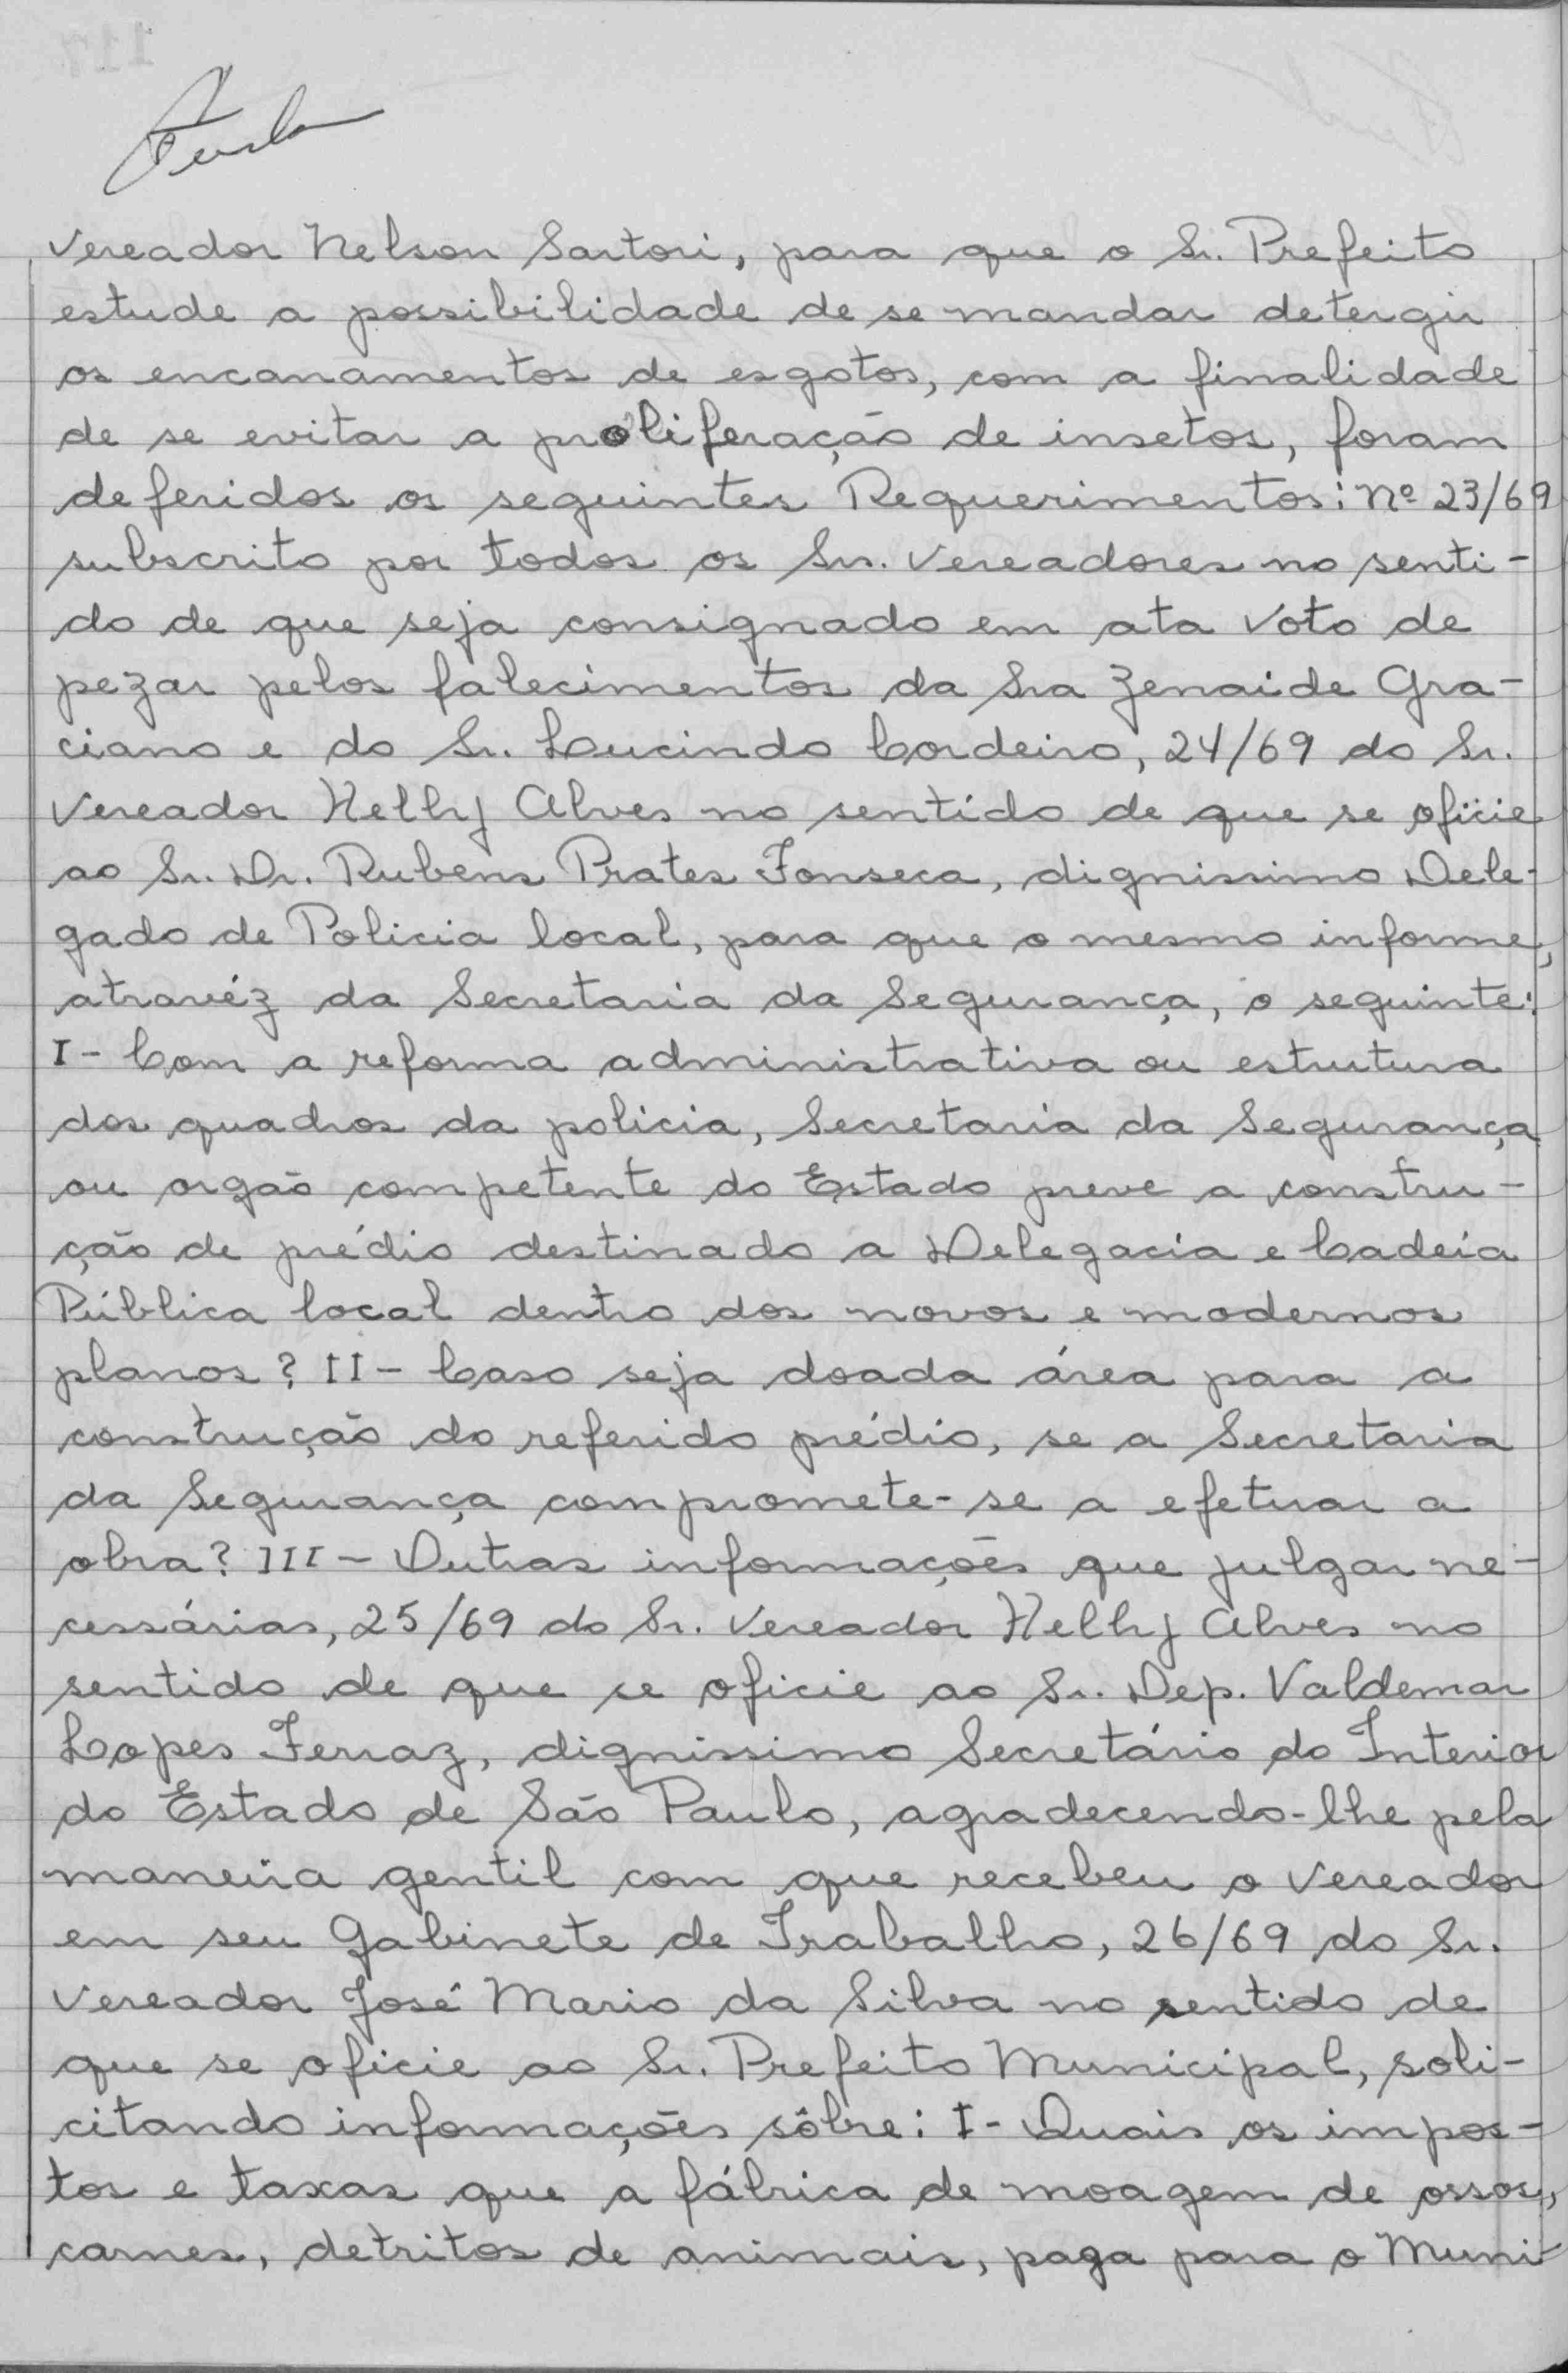 Vereador Nelson Sartori, para que o Sr. Prefeito
estude a possibilidade de se mandar detergir
os encanamentos de esgotos, com a finalidade
de se evitar a proliferação de insetos, foram
deferidos os seguintes Requerimentos: Nº 23/69
subscrito por todos os Srs. Vereadores no senti-
do de que seja consignado em ata Voto de
pezar pelos falecimentos da Sra Zenaide Gra-
ciano e do Sr. Lucindo Cordeiro, 24/69 do Sr.
Vereador Helly Alves no sentido de que se oficie
ao Sr. Dr. Rubens Prates Fonseca, dignissimo Dele-
gado de Policia local, para que o mesmo informe,
atravéz da Secretaria da Segurança, o seguinte:
I - Com a reforma administrativa ou estrutura
dos quadros da policia, Secretaria da Segurança
ou orgão competente do Estado preve a constru-
ção de prédio destinado a Delegacia e Cadeia
Pública local dentro dos novos e modernos
planos? II - Caso seja doada área para a
construção do referido prédio, se a Secretaria
da Segurança compromete-se a efetuar a
obra? III - Outras informações que julgar ne-
cessárias, 25/69 do Sr. Vereador Helly Alves no
sentido de que se oficie ao Sr. Dep. Valdemar
Lopes Ferraz, dignissimo Secretário do Interior
do Estado de São Paulo, agradecendo-lhe pela
maneira gentil com que recebeu o Vereador
em seu Gabinete de Trabalho, 26/69 do Sr.
Vereador José Mario da Silva no sentido de
que se oficie ao Sr. Prefeito Municipal, soli-
citando informações sôbre: I - Quais os impos-
tos e taxas que a fábrica de moagem de ossos,
carnes, detritos de animais, paga para o Muni-